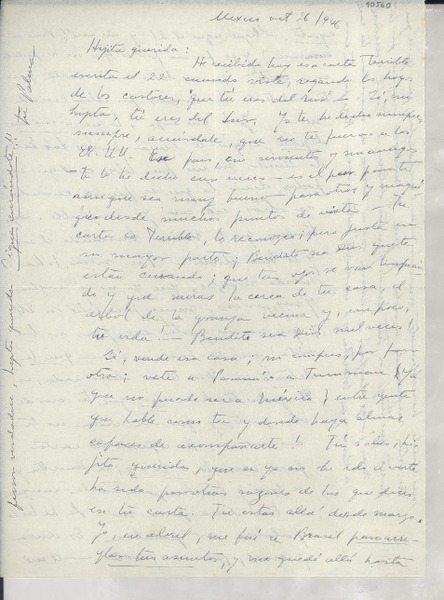 10560
Mexico oct 6/946
Hijita querida:
He recibido hoy esa carta terrible
escrita el 22
de los castores, que tú eres del
hijita, tú eres del Sur. Ya te he dicho siempre,
siempre, acuérdate, que no te fueras a los
EE. UU. Ese país, sin sirvientes y
te lo he dicho cien veces - es el peor para ti
aunque sea muy bueno para otros y magní-
fico desde muchos puntos de vista. Tu
carta es terrible, lo reconozco; pero justa en
su mayor parte; Bendito sea Dios que te
están curando; que tus ojos se van limpian-
do y que miras la cerca de tu casa, el
árbol de la granja vecina y, un poco,
tu vida! - Bendito sea Dios mil veces!
Sí, vende esa casa; no compres, por favor,
otra; vete a Panamá o a
que no puede ser a México, entre gente
que hable como tú y donde haya almas
capaces de acompañarte! Tú sabes, hi-
jita querida, que si yo no he ido a verte
ha sido por otras razones de las que dices
en tu carta. Tú estás allá desde marzo.
Yo, en abril, me fui a Brasil para arre-
glar tus asuntos, y me quedé allá hasta
hijita querida. Sigue curándote!! tu Palma